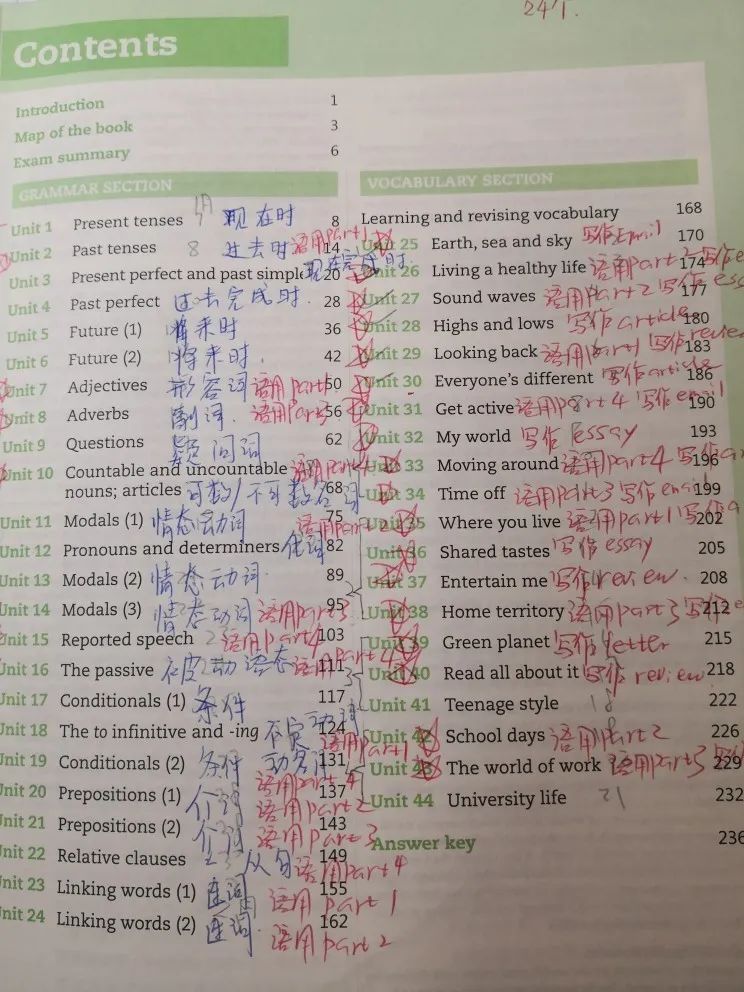 24/1.
Contents
Introduction 1
Map of the book 3
Exam summary 6
GRAMMAR SECTION
Unit 1 Present tenses 现在时 8
Unit 2 Past tenses 8 过去时 语用part1 14
Unit 3 Present perfect and past simple 现在完成时 20
Unit 4 Past perfect 过去完成时. 28
Unit 5 Future (1) 将来时 36
Unit 6 Future (2) 将来时. 42
Unit 7 Adjectives 形容词 语用part 50
Unit 8 Adverbs 副词. 语用part 56
Unit 9 Questions 疑问词 62
Unit 10 Countable and uncountable
nouns; articles 可数/不可数名词 68
Unit 11 Modals (1) 情态动词 75
Unit 12 Pronouns and determiners 代词 82
Unit 13 Modals (2) 情态动词. 89
Unit 14 Modals (3) 情态动词 语用part3 95
Unit 15 Reported speech 语用part4 103
Unit 16 The passive 被动语态 语用part 4 111
Unit 17 Conditionals (1) 条件 117
Unit 18 The to infinitive and -ing 不定 动词 124
Unit 19 Conditionals (2) 条件 131
Unit 20 Prepositions (1) 介词 语用part 2 137
Unit 21 Prepositions (2) 介词 语用part 3 143
Unit 22 Relative clauses 从句 语用part 4 149
Unit 23 Linking words (1) 连词 语用 part 1 155
Unit 24 Linking words (2) 连词. 语用part 2 162
VOCABULARY SECTION
Learning and revising vocabulary 168
Unit 25 Earth, sea and sky 写作Email 170
Unit 26 Living a healthy life 语用part 写作 174
Unit 27 Sound waves 语用part 2 写作 ess 177
Unit 28 Highs and lows 写作 article 180
Unit 29 Looking back 语用part1 写作review 183
Unit 30 Everyone's different 写作article 186
Unit 31 Get active 语用part 4 写作 email 190
Unit 32 My world 写作 essay 193
Unit 33 Moving around 语用part4 写作 196
Unit 34 Time off 语用part3 写作 email 199
Unit 35 Where you live 语用part1 写作 202
Unit 36 Shared tastes 写作 essay 205
Unit 37 Entertain me 写作review. 208
Unit 38 Home territory 语用part3 写作 212
Unit 39 Green planet 写作letter 215
Unit 40 Read all about it 写作 review 218
Unit 41 Teenage style 18 222
Unit 42 School days 语用part 2 226
Unit 43 The world of work 语用part3 写作 229
Unit 44 University life 21 232
Answer key 236